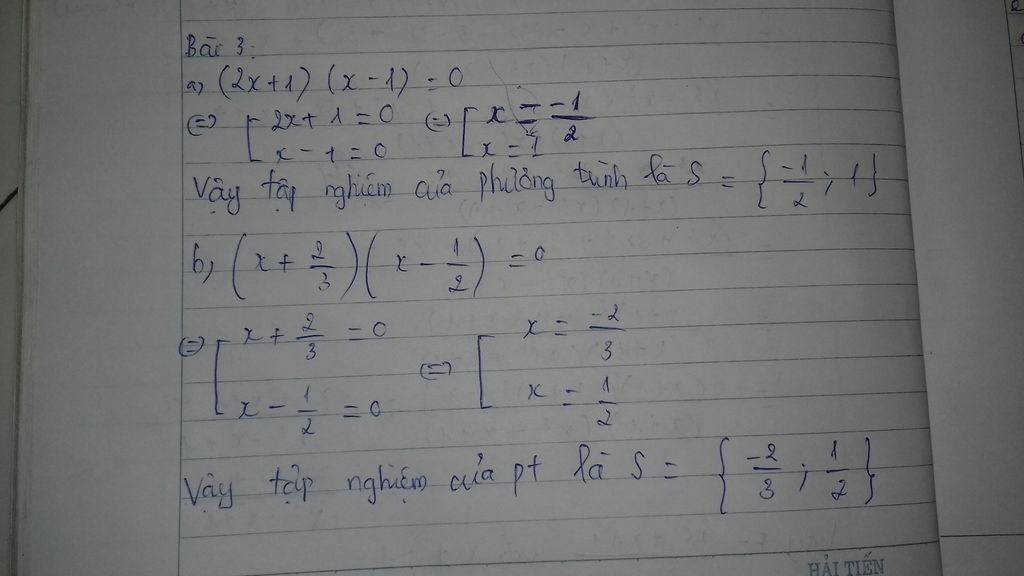 Bài 3:
a, (2x+1) (x-1) = 0
⇔ [ 2x+1=0 ⇔ [ x = -1/2
x-1=0 x=1
Vậy tập nghiệm của phương trình là S = {-1/2; 1}
b, (x + 2/3)(x - 1/2) = 0
⇔ [ x + 2/3 = 0 ⇔ [ x = -2/3
x - 1/2 = 0 x = 1/2
Vậy tập nghiệm của pt là S = {-2/3; 1/2}
HẢI TIẾN